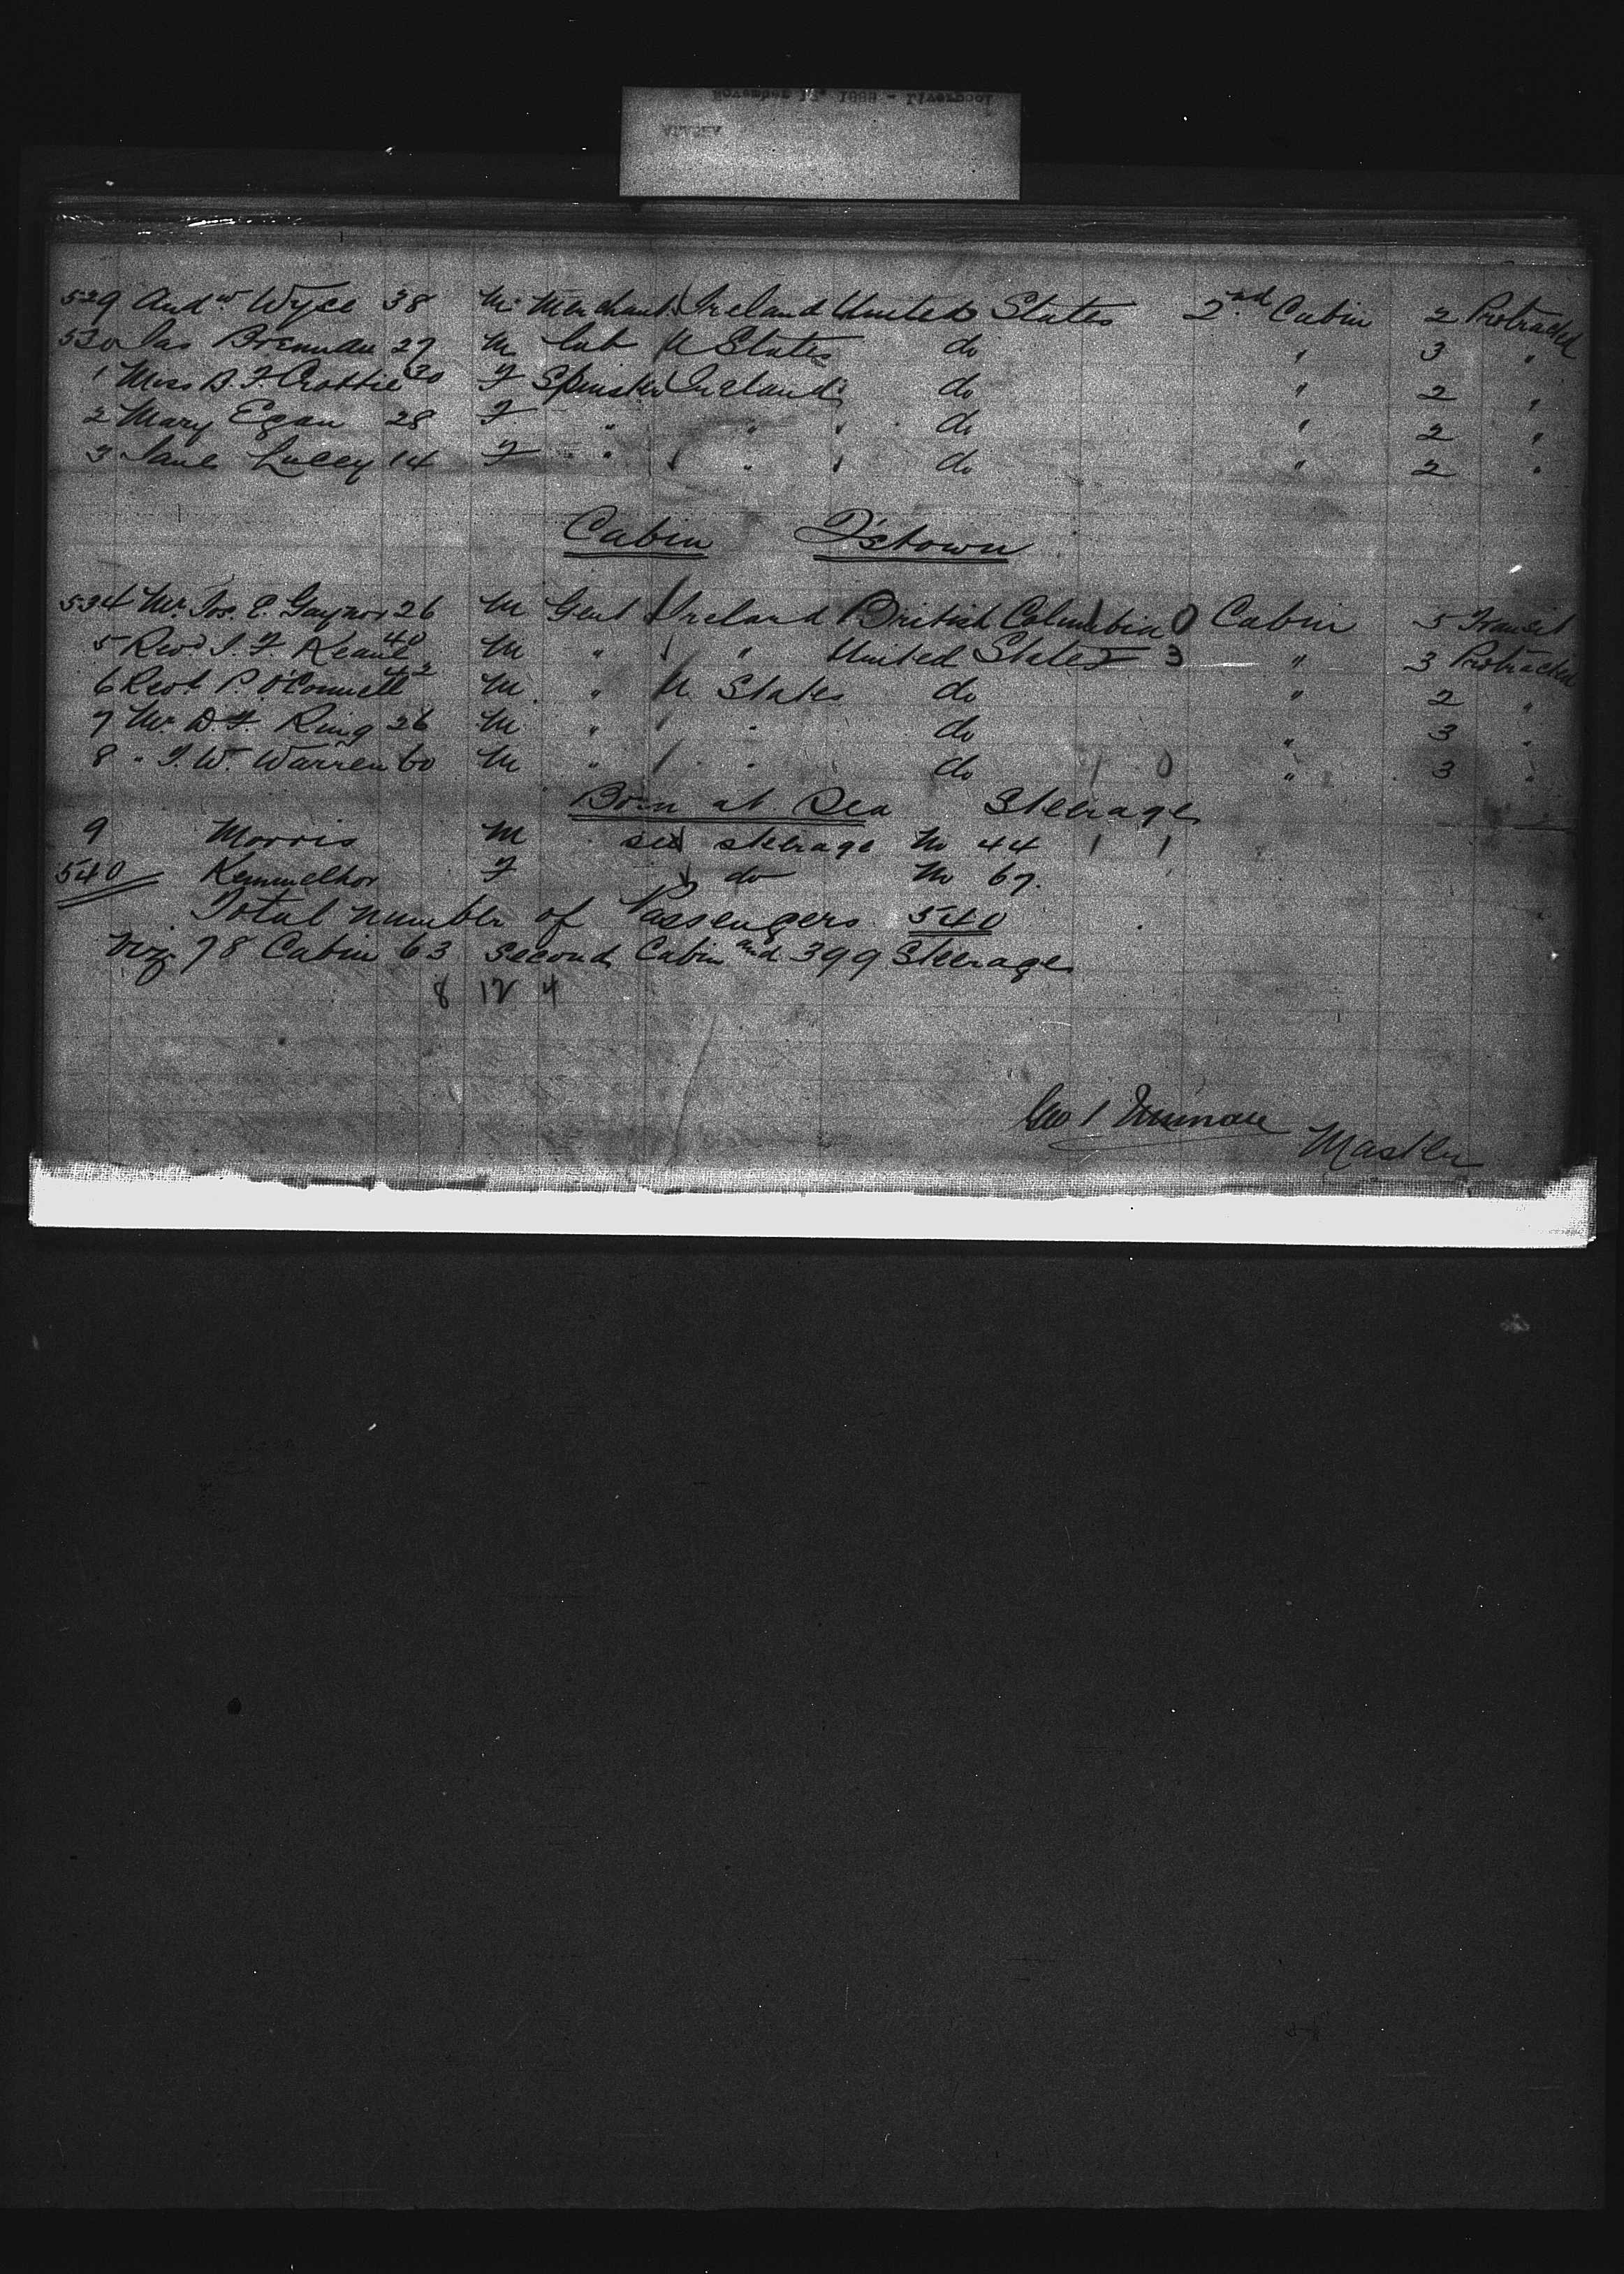 November 17, 1888 - Liverpool
ALASKA
529 Andw. Wyse 38 M Merchant Ireland United States 2nd Cabin 2 Protracted
530 Jas Brennan 27 M Lab U States do " 3 "
1 Miss B F Crottie 30 F Spinster Ireland do " 2 "
2 Mary Egan 28 F " " " do " 2 "
3 Jane Lucey 14 F " " " do " 2 "
Cabin Q'stown
534 Mr. Jos. E. Gaynor 26 M Gent Ireland British Columbia 0 Cabin 5 Transit
5 Revd J. F Keane 40 M " " United States 3 " 3 Protracted
6 Revd P. O'Connell 42 M " U. States do " 2 "
7 Mr. D. F. Ring 26 M " " do " 3 "
8 " J. W. Warren 60 M " " do 1 0 " 3 "
Born at Sea Steerage
9 Morris M see steerage No 44 1 1
540 Kemmelhor F do No 67.
Total number of Passengers 540
Viz 78 Cabin 63 Second Cabin and 399 Steerage
8 12 4
Geo Master